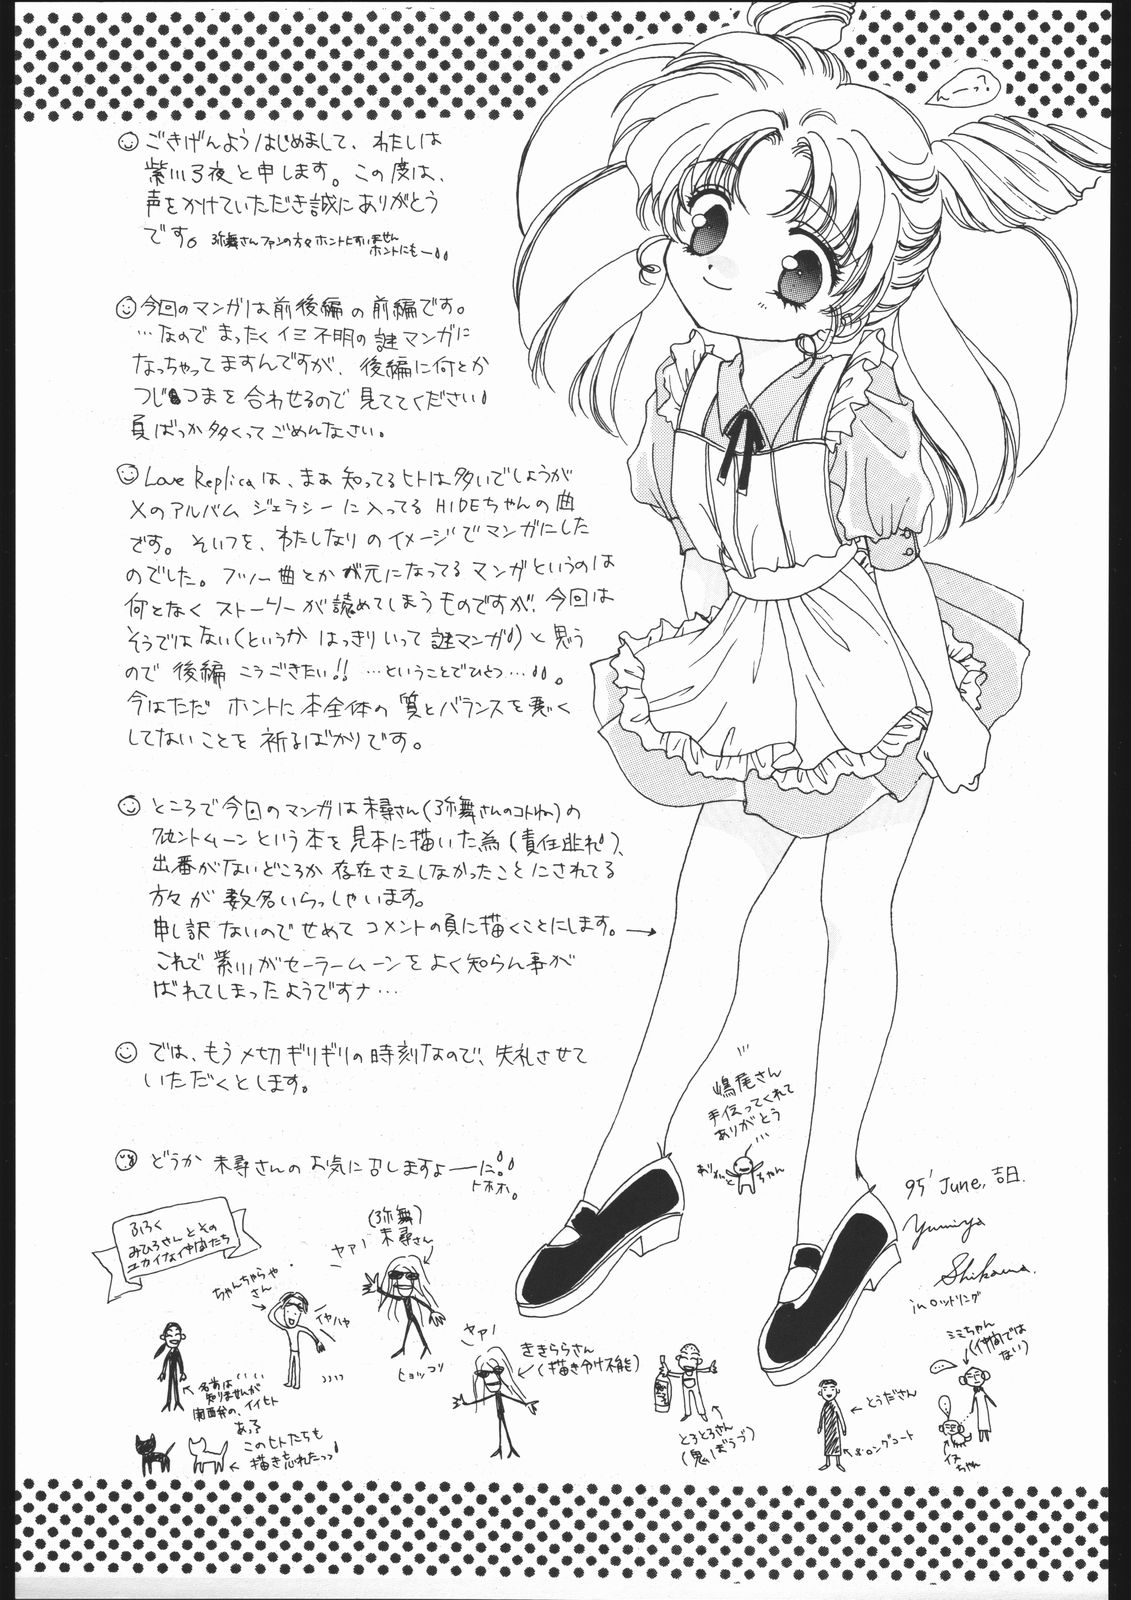 ごきげんよう はじめまして、 わたしは
紫川弓夜と申します。この度は、
声をかけていただき誠にありがとう
です。 弥舞さんファンの方々ホントにすいません
ホントにもー
今回のマンガは前後編の前編です。
…なので まったくイミ不明の謎マンガに
なっちゃってますんですが、後編に何とか
つじつまを合わせるので見ててください
頁ばっか多くってごめんなさい。
Love Replicaは、まぁ知ってるヒトは多いでしょうが
Xのアルバム ジェラシーに入ってる HIDEちゃんの曲
です。そいつを、わたしなりのイメージでマンガにした
のでした。フツー曲とかが元になってるマンガというのは
何となくストーリーが読めてしまうものですが、今回は
そうではない(というか はっきりいって謎マンガ)と思う
ので 後編 こうごきたい!! …ということでひとつ…。
今はただ ホントに本全体の質とバランスを悪く
してないことを祈るばかりです。
ところで今回のマンガは未尋さん(弥舞さんのコトね)の
クレセントムーンという本を見本に描いた為(責任逃れ)、
出番がないどころか存在さえしなかったことにされてる
方々が数名いらっしゃいます。
申し訳ないのでせめてコメントの頁に描くことにします。→
これで紫川がセーラームーンをよく知らん事が
ばれてしまったようですナ…
では、もう〆切ギリギリの時刻なので、失礼させて
いただくとします。
どうか 未尋さんのお気に召しますよーに
トホホ。
んーっ?
嶋尾さん
手伝ってくれて
ありがとう
ちゃん
95' June, 吉日.
Yumiya
Shikawa.
in ロットリング
ふろく
みひろさんとその
ユカイな仲間たち
ちゃんちゃらや
さん
イヤハヤ
ヤアノ
(弥舞)
未尋さん
ヒョッコリ
ヤアノ
ききららさん
(描き分け不能)
名前は
知りませんが
関西弁の、イイヒト
あっ
このヒトたちも
描き忘れたっっ
とろとろさん
(鬼ぼうず)
とうださん
ロングコート
ミミちゃん
(仲間では
ない)
イヌ
ちゃん